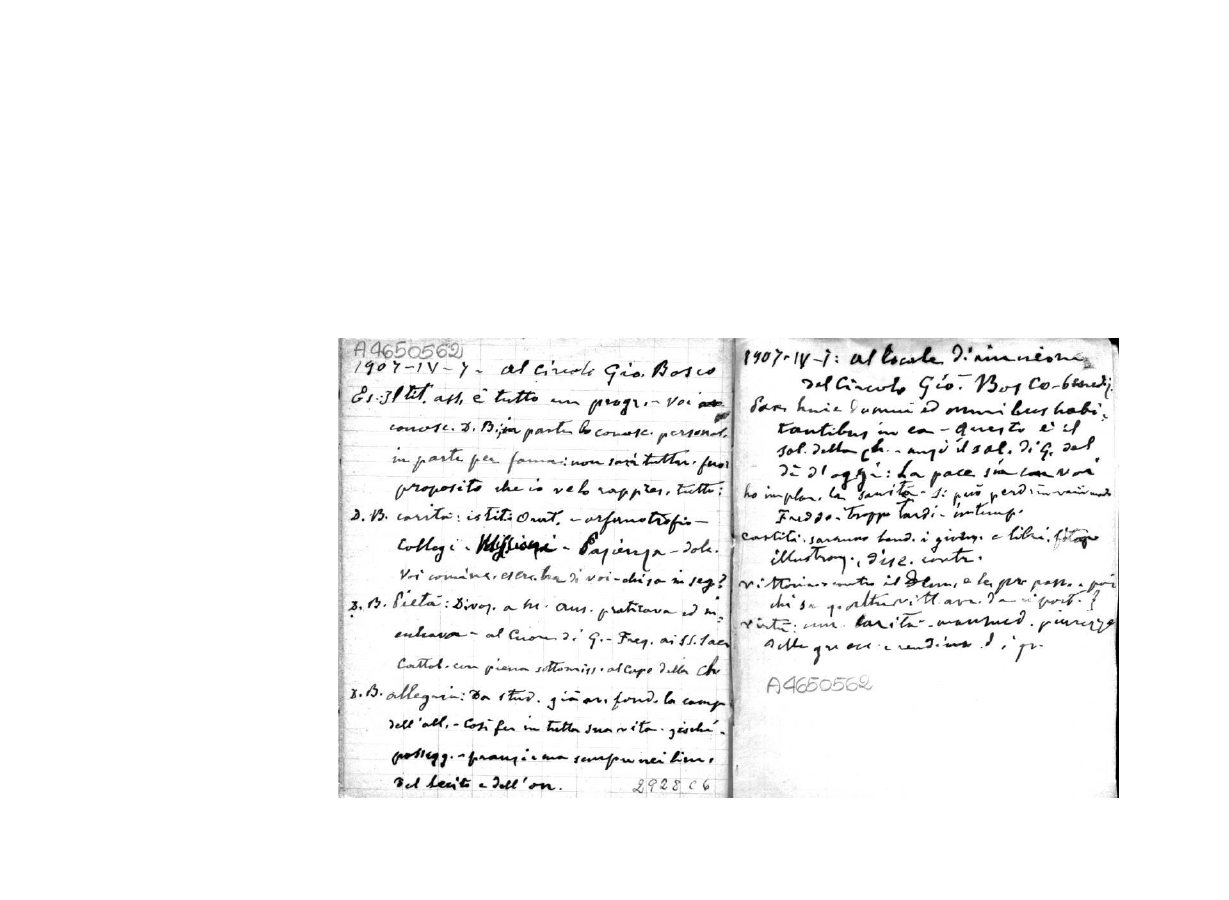 A4650562
1907-IV-7- al Circolo Gio. Bosco
Es: Il tit. ass. è tutto un progr. - Voi
conosc. D. B. in parte lo conosc. personal.
in parte per fama: non sarà tutta. fuor
proposito che io ve lo rappres. tutto:
D. B. carità: istitì Orat. - orfanotrofio -
Collegi - - Pazienza - dolc.
Voi cominc. esca. di voi - chi sa in seg?
D. B. Pietà: Divoz. a M. Aus. praticava ed in,
culcava - al Cuore di G. - Freq. ai SS. Sacr
Cattol. con piena sottomiss. al Capo della Ch
D. B. allegria: Da stud. già av. fond. la comp
dell'all. - Così fu in tutta sua vita - giochi -
passegg. - pranzi: ma sempre nei lim.
del lecito e dell'on.
2928 C6
1907-IV-7: al locale di riunione
del Circolo Gio. Bosco - benediz.
Pax huic domui et omnibus habi-
tantibus in ea - Questo è il
sal. della Ch. - anzi il sal. di G. del
dì d'oggi: La pace sia con voi
ho implor. la sanità - si può perd. in
Freddo - troppo tardi - intemp.
castità: saranno band. i giorn. e libri.
illustraz., disc. contr.
vittoria - contro il Dem. e
chi sa q. altre vitt. av. da riport.?
virtù: um. carità - mansued. purezza
delle gr.
A4650562